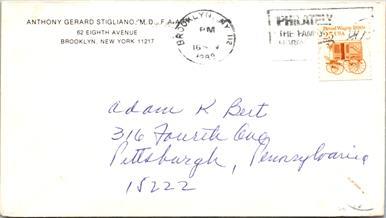 ANTHONY GERARD STIGLIANO, M.D., F.A.A.
62 EIGHTH AVENUE
BROOKLYN, NEW YORK 11217
BROOKLYN, NY 112
PM
16
PHILATELY
THE FAMILY
Bread Wagon 1880s
25 USA
Adam K Bert
316 Fourth Ave
Pittsburgh, Pennsylvania
15222